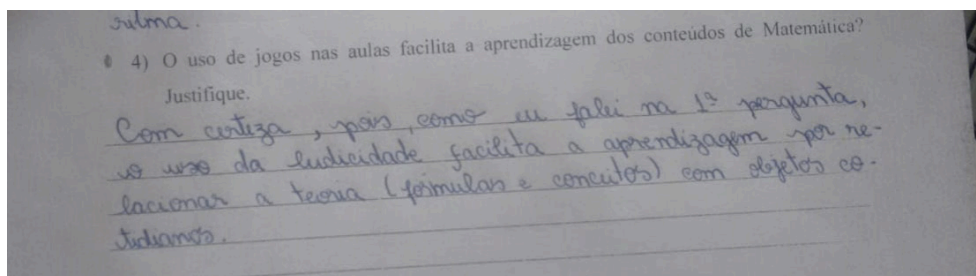 ritma.
4) O uso de jogos nas aulas facilita a aprendizagem dos conteúdos de Matemática?
Justifique.
Com certeza, pois, como eu falei na 1ª pergunta,
o uso da ludicidade facilita a aprendizagem por re-
lacionar a teoria (fórmulas e conceitos) com objetos co-
tidianos.